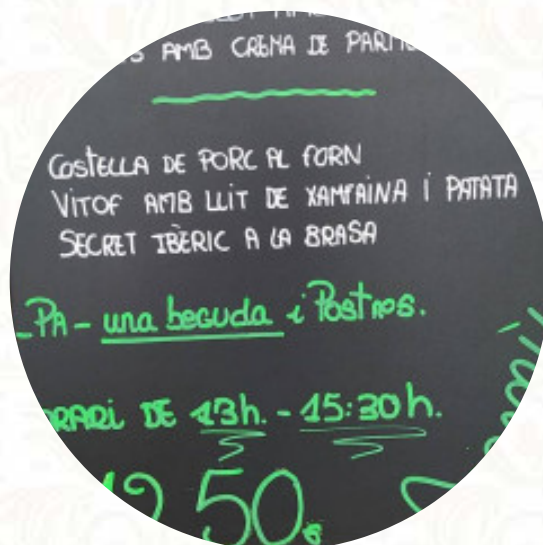 AMB CREMA DE
COSTELLA DE PORC AL FORN
VITOF AMB LLIT DE XAMFAINA I PATATA
SECRET IBÈRIC A LA BRASA
PA - una beguda i Postres.
DE 13h. - 15:30h.
50€